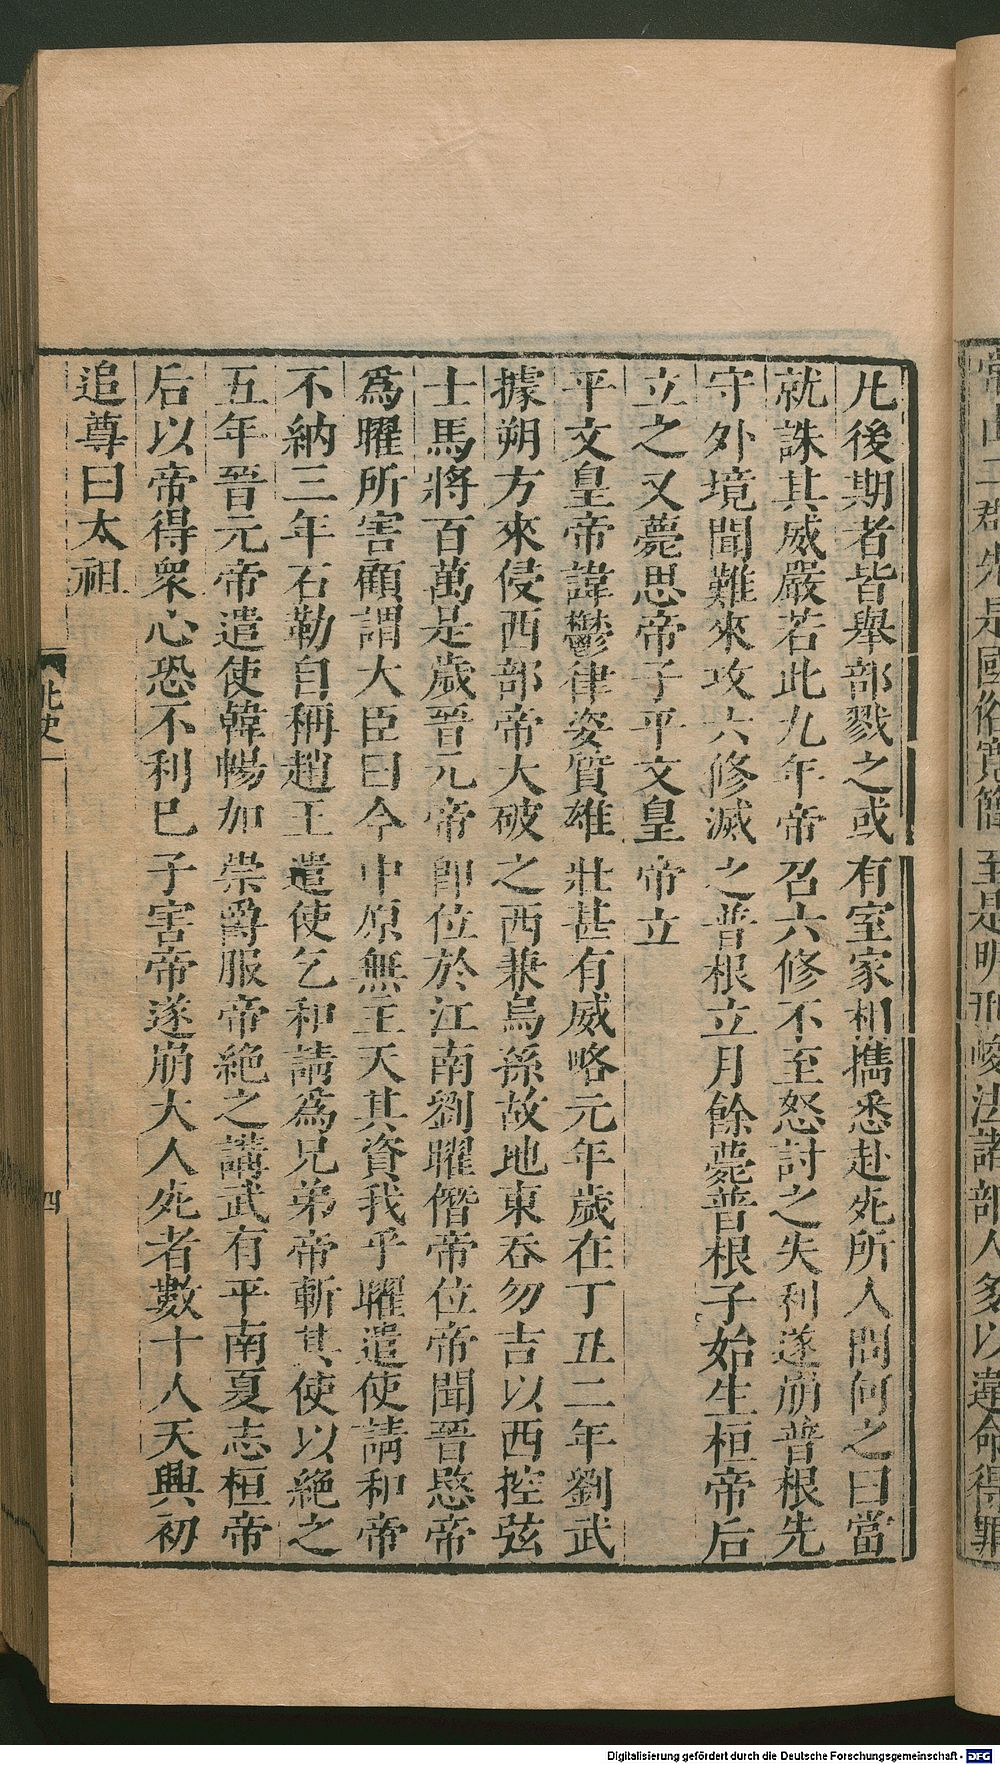 常山二郡先是國俗寬簡至是明刑峻法諸部人多以違命得罪
凡後期者皆舉部戮之或有室家相攜悉赴死所人問何之曰當
就誅其威嚴若此九年帝召六修不至怒討之失利遂崩普根先
守外境聞難來攻六修滅之普根立月餘薨普根子始生桓帝后
立之又薨思帝子平文皇帝立
平文皇帝諱鬱律姿質雄壯甚有威略元年歲在丁丑二年劉武
據朔方來侵西部帝大破之西兼烏孫故地東吞勿吉以西控弦
士馬將百萬是歲晉元帝即位於江南劉曜僭帝位帝聞晉愍帝
爲曜所害顧謂大臣曰今中原無主天其資我乎曜遣使請和帝
不納三年石勒自稱趙王遣使乞和請爲兄弟帝斬其使以絕之
五年晉元帝遣使韓暢加崇爵服帝絕之講武有平南夏志桓帝
后以帝得衆心恐不利已子害帝遂崩大人死者數十人天興初
追尊曰太祖
北史一
四
Digitalisierung gefördert durch die Deutsche Forschungsgemeinschaft - DFG